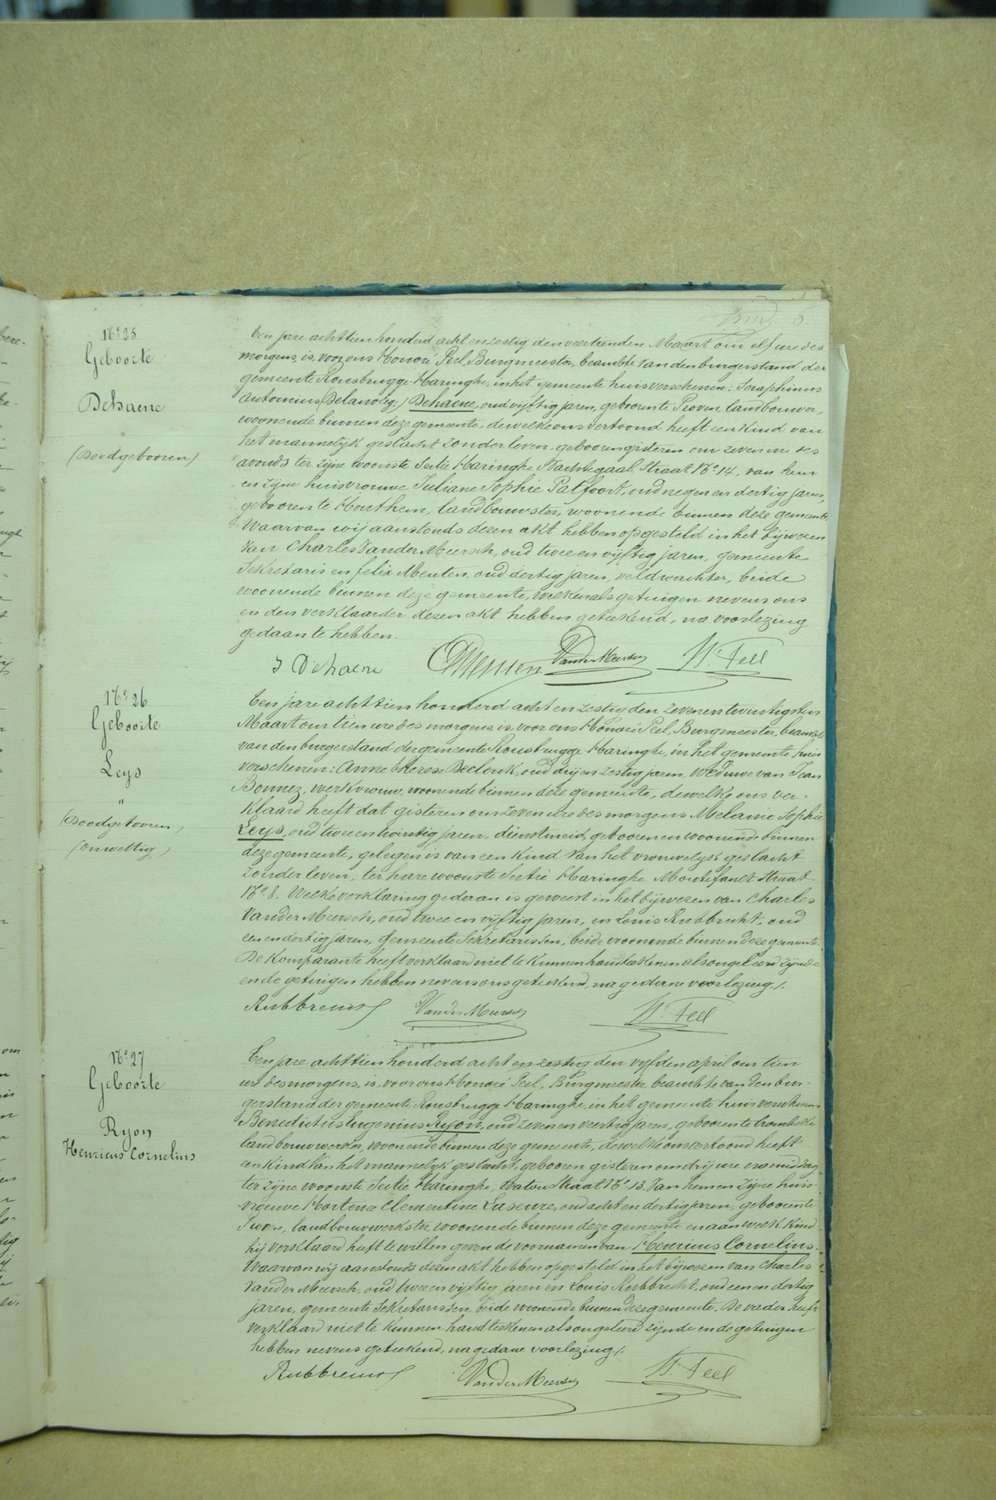 N° 25
Geboorte
Dehaene
(Doodgebooren)
Een jare achttien honderd acht en zestig den veertienden Maart om elf ure des
morgens, is, voor ons Honoré Peel, Burgmeester, beambte van den burgerstand der
gemeente Rousbrugge-Haringhe, in het gemeente huis verschenen: Seraphinus
Antonius (Delanoeg) Dehaene, oud vijftig jaren, geboren te Proven, landbouwer,
woonende binnen deze gemeente, dewelke ons vertoond heeft een kind van
het mannelijk geslacht zonder leven, gebooren gisteren om zeven ure des
avonds ter zijne woonste Sectie Haringhe, straat N° 14, van hem
en zijne huisvrouwe Juliane Sophie Palfoort, oud negen en dertig jaren,
gebooren te Houthem, landbouwster, woonende binnen deze gemeente.
Waarvan wij aanstonds dezen akt hebben opgesteld in het bijwezen
van Charles Vander Meersch, oud twee en vijftig jaren, gemeente
Sekretaris en Felix Menten, oud dertig jaren, veldwachter, beide
woonende binnen deze gemeente, welke als getuigen nevens ons
en den verklaarder dezen akt hebben geteekend, na voorlezing
gedaan te hebben.
S Dehaene Menten VanderMeersch H. Peel
N° 26
Geboorte
Leys
(Doodgebooren,
onwettig)
Een jare achttien honderd acht en zestig den zevenentwintigsten
Maart om tien ure des morgens is voor ons Honoré Peel, Burgmeester, beambte
van den burgerstand der gemeente Rousbrugge-Haringhe, in het gemeente huis
verschenen: Anne Therese Declonk, oud drij en zestig jaren, weduwe van Jean
Bonnez, werkvrouw, woonende binnen deze gemeente, dewelke ons ver-
klaard heeft dat gisteren om zeven ure des morgens Melanie Sophie
Leys, oud twee en dertig jaren, dienstmeid, gebooren en woonende binnen
deze gemeente, gelegen is van een kind van het vrouwelijk geslacht
zonder leven, ter hare woonste Sectie Haringhe straat
N° 8. Welke verklaring gedaan is geweest in het bijwezen van Charles
Vander Meersch, oud twee en vijftig jaren, en Louis Rubbrecht, oud
een en dertig jaren, gemeente Sekretarissen, beide woonende binnen deze gemeente.
De Komparante heeft verklaard niet te kunnen handteekenen als ongeleerd zijnde
en de getuigen hebben nevens ons geteekend, na gedane voorlezing/.
Rubbrecht VanderMeersch H. Peel
N° 27
Geboorte
Ryon
Henricus Cornelius
Een jare achttien honderd acht en zestig den vijfden april om tien
ure des morgens, is voor ons Honoré Peel, Burgmeester, beambte van den bur-
gerstand der gemeente Rousbrugge-Haringhe, in het gemeente huis verschenen
Benedictus Eugenius Ryon, oud zeven en veertig jaren, gebooren te Crombeke
landbouwwerker, woonende binnen deze gemeente, dewelke ons vertoond heeft
een kind van het mannelijk geslacht, gebooren gisteren om drij ure namiddag
ter zijne woonste Sectie Haringhe, Watou Straat N° 13, van hem en zijne huis-
vrouwe Hortense Clementine Laseure, oud acht en dertig jaren, gebooren te
landbouwwerkster, woonende binnen deze gemeente en aan welk kind
hij verklaard heeft te willen geven de voornamen van Henricus Cornelius.
Waarvan wij aanstonds dezen akt hebben opgesteld in het bijwezen van Charles
Vander Meersch, oud twee en vijftig jaren en Louis Rubbrecht, oud een en dertig
jaren, gemeente Sekretarissen, beide woonende binnen deze gemeente. De vader heeft
verklaard niet te kunnen handteekenen als ongeleerd zijnde en de getuigen
hebben nevens geteekend, na gedane voorlezing/.
Rubbrecht VanderMeersch H. Peel